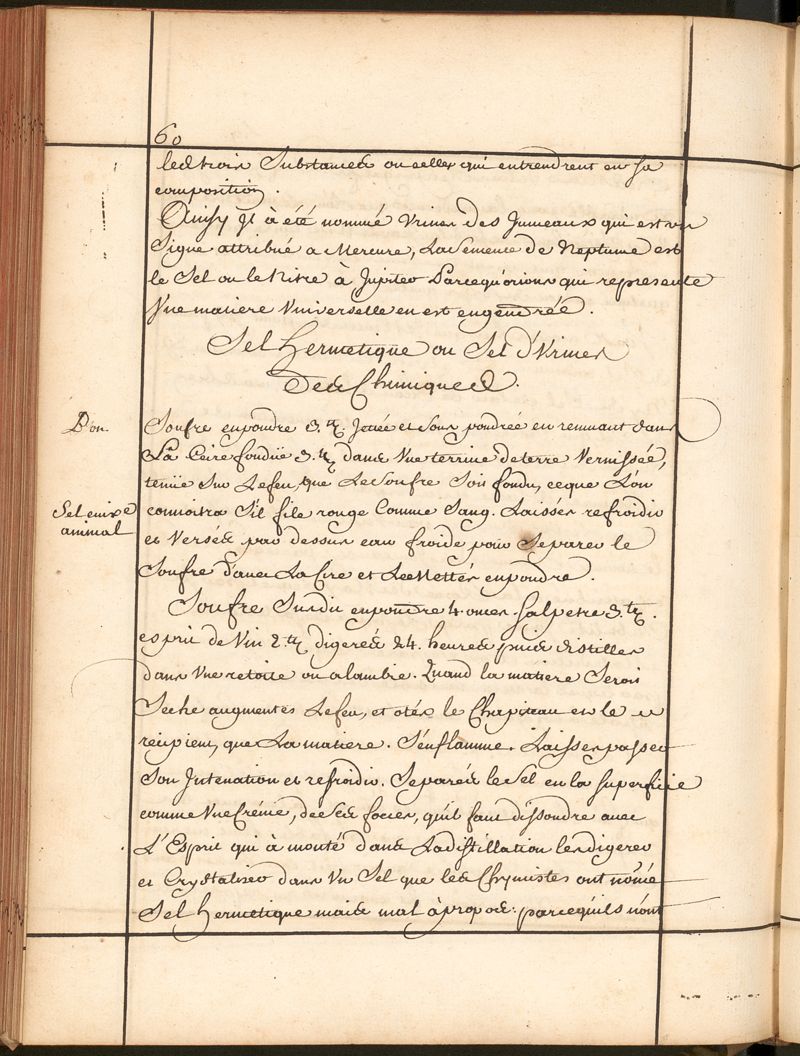 60
les trois Substances ou celles qui entrendrent en sa
composition.
Ainsy Jl à été nommé Vrines des Jumeaux qui est un
Signe attribué a Mercure, La Semence de Neptume est
le Sel ou le Nitre à Jupiter Parcequ'orions qui represente
Vne matiere Vniverselle en est engendrée.
Sel Hermetique ou Sel d'Vrines
Des Chimiques.
D'or.
Soufre en poudre 3. ℔. Jettée et Sous poudrée en remuant dans
La Cire fondüe 3. ℔ dans Vne terrine de terre Vernissée,
tenüe Sur Le feu, que Le Soufre Soit fondu, ce que L'on
Sel enixe
animal
connoitra S'il file rouge Comme Sang. Laisser refroidir
et Versés par dessus eau froide pour Separer le
Soufre d'avec La Cire et Le Mettés en poudre.
Soufre Susdit en poudre 4. onces Salpetre 3. ℔.
esprit de Vin 2. ℔ digerés 24. heures puis distiller
dans Vne retorte ou alambic. Quand la matiere Serois
Seche augmentés Le feu, et otés le Chapiteau et le
recipient, que La matiere S'enflamme. Laisser passer
Son Jntenation et refroidir. Separés le Sel en la superficie
comme Vne Créme, de ses foeces, qu'il faut dissoudre avec
L'Esprit qui à monté dans La distillation les digerer
et Crystaliser dans Vn Sel que les Chymistes ont nom̃é
Sel Hermetique mais mal àpropos: parcequ'ils n'ont